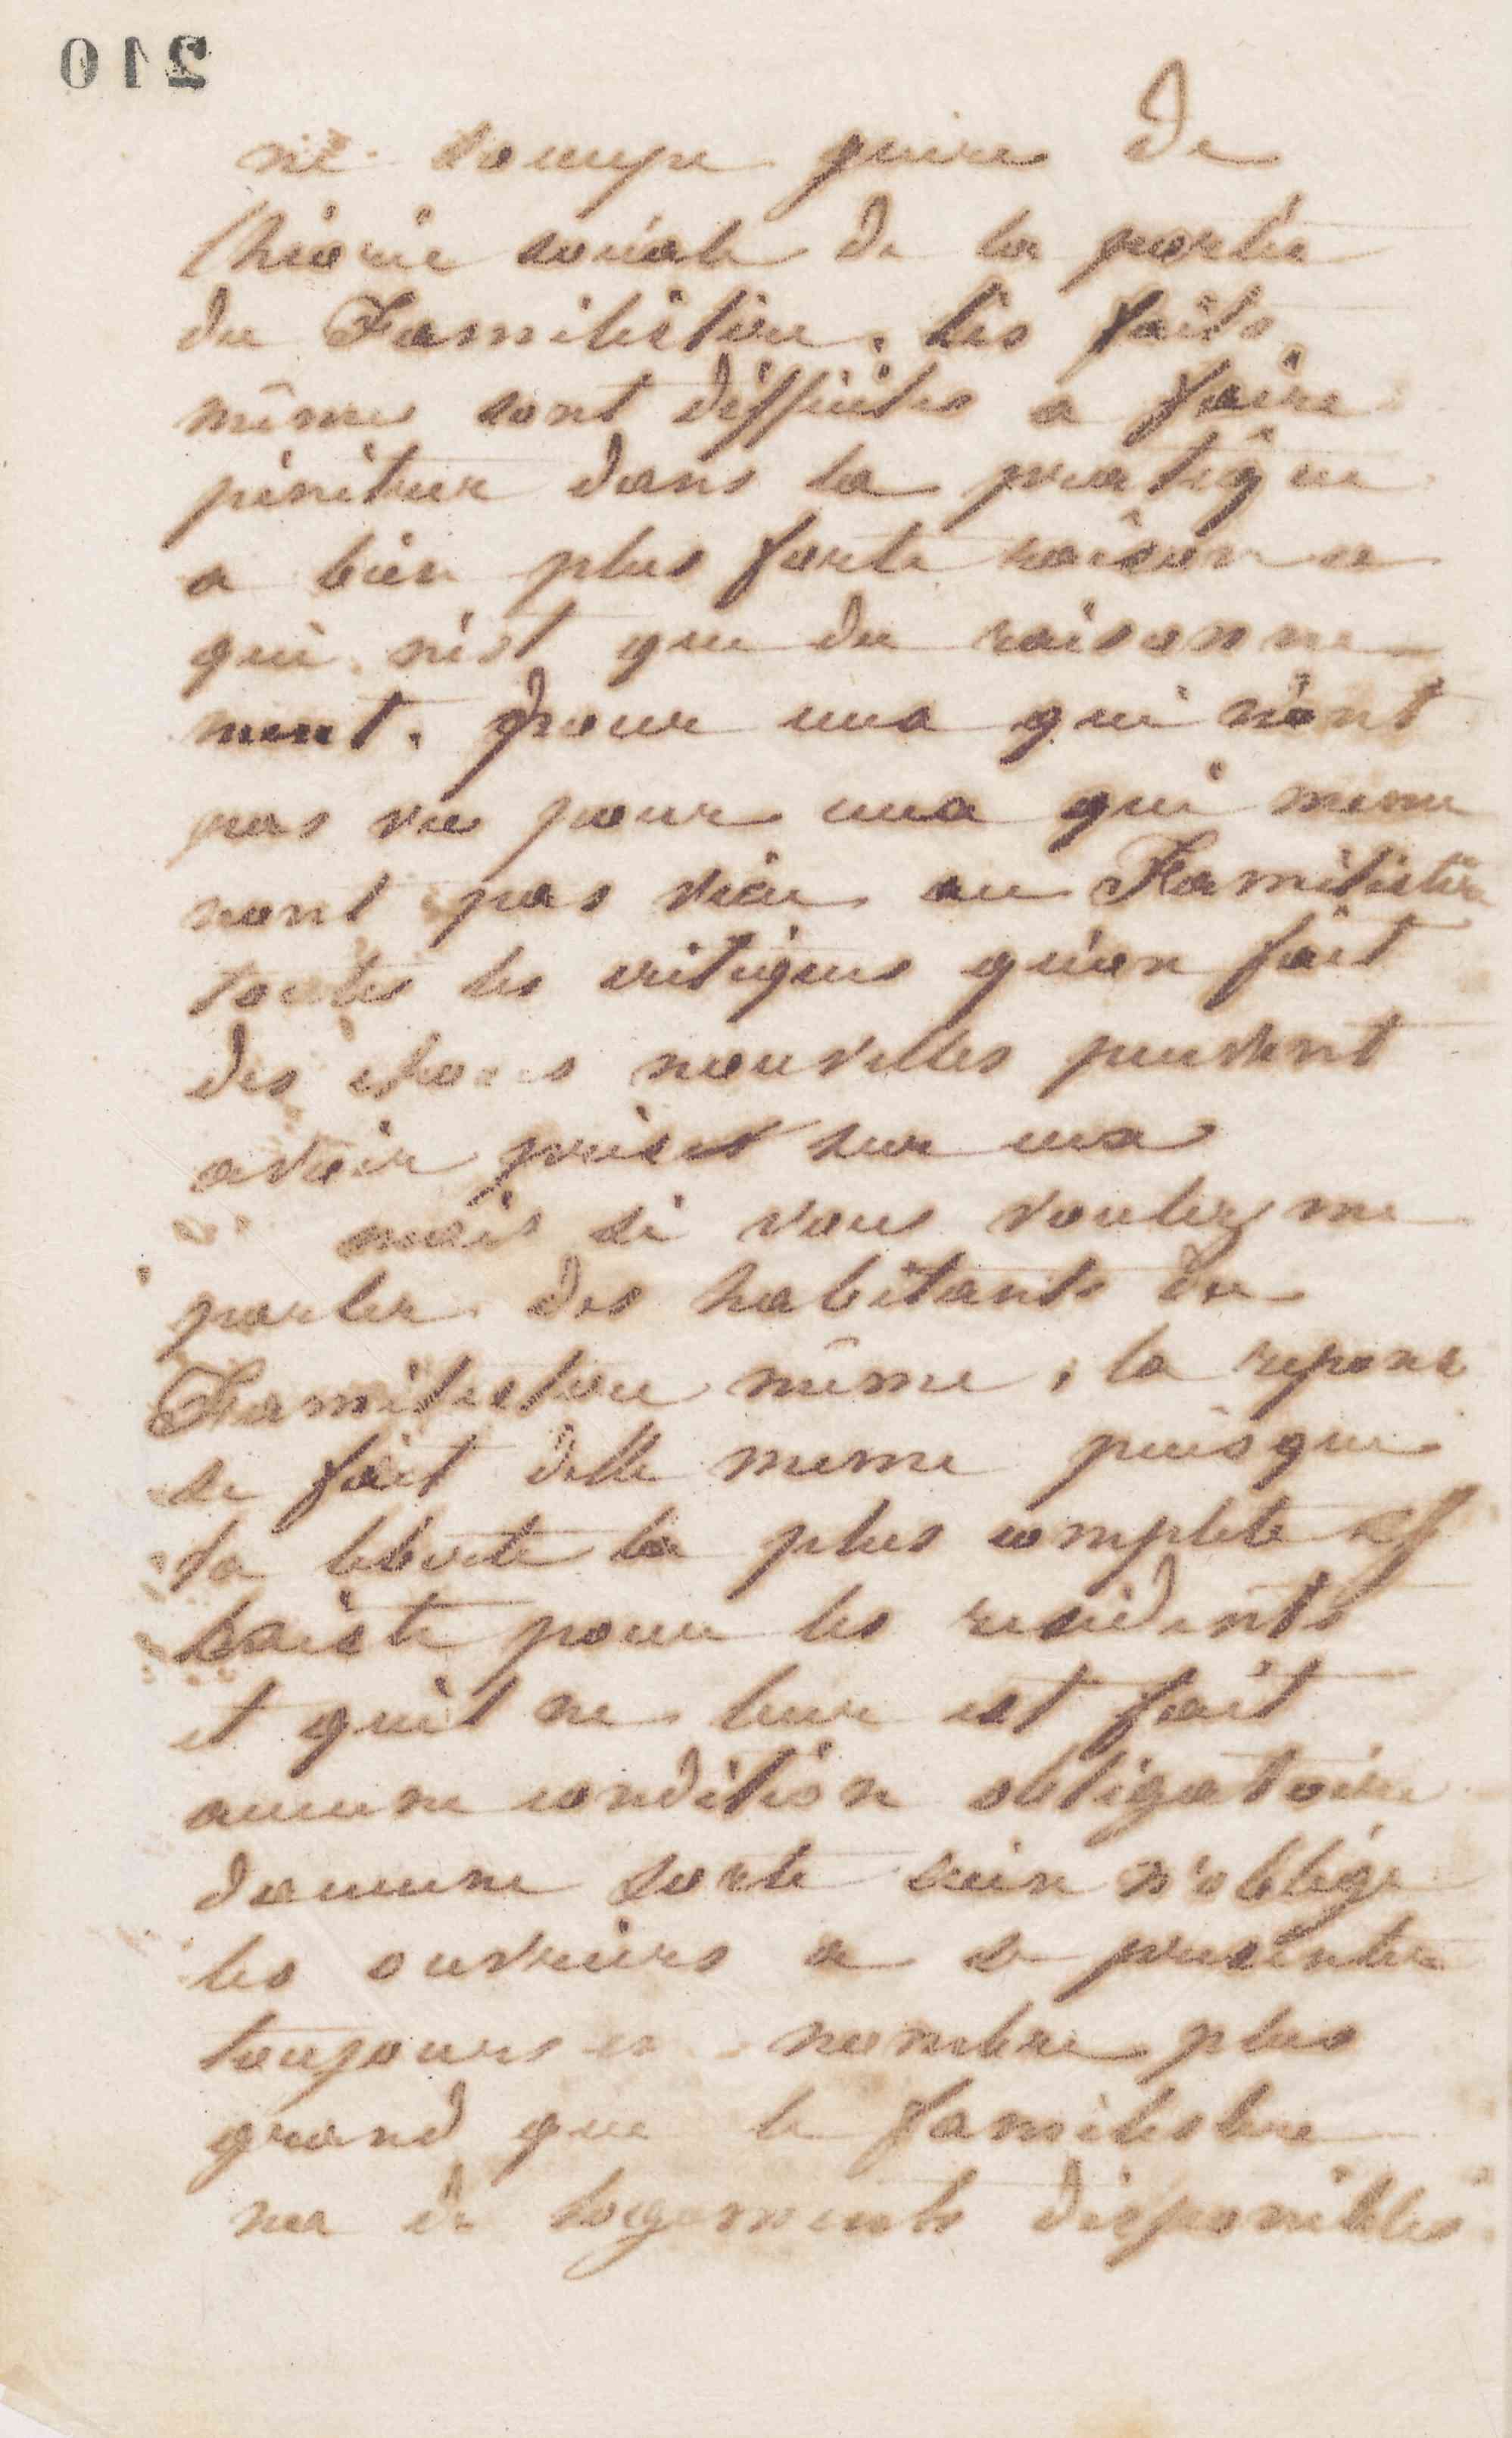 210
ne s'occupe guère de
théorie sociale de la portée
du Familistère. Les faits
même sont difficiles a faire
pénétrer dans la pratique
a bien plus forte raison ce
qui n'est que du raisonne-
ment. pour ceux qui n'ont
pas vu pour ceux qui meme
nont pas vécu au Familistère
toutes les critiques qu'on fait
des choses nouvelles peuvent
avoir prise sur eux
mais si vous voulez me
parler des habitants du
Familistère même, la reponse
se fait delle meme puisque
la liberté la plus complete
existe pour les residents
et quil ne leur est fait
aucune condition obligatoire
daucune sorte rien n'oblige
les ouvriers a se presenter
toujours en nombre plus
grand que le familistere
na de logements disponibles